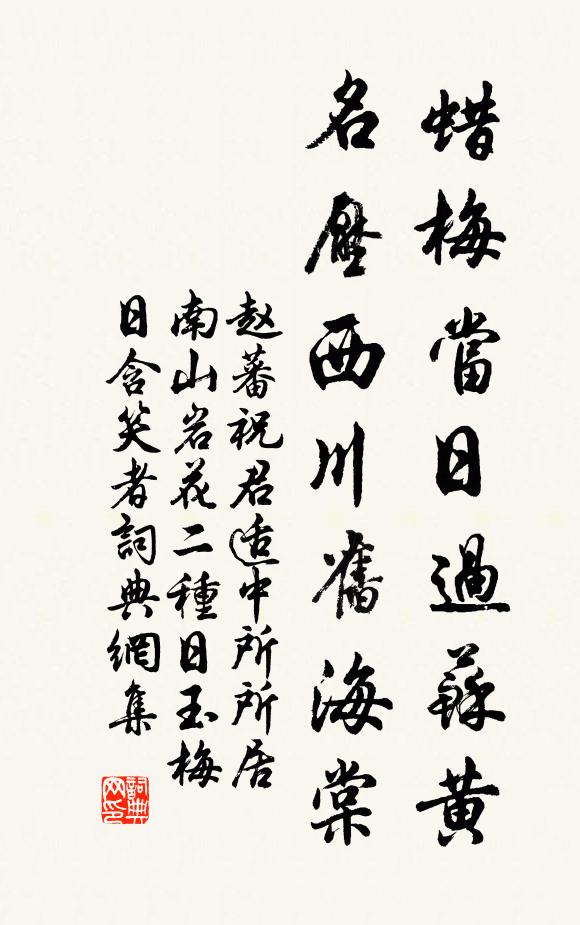 蜡梅當日過蘇黃
名壓西川舊海棠
赵蕃祝君适中所所居
南山岩花二種日玉梅
日含笑者詞典網集
詞典网印